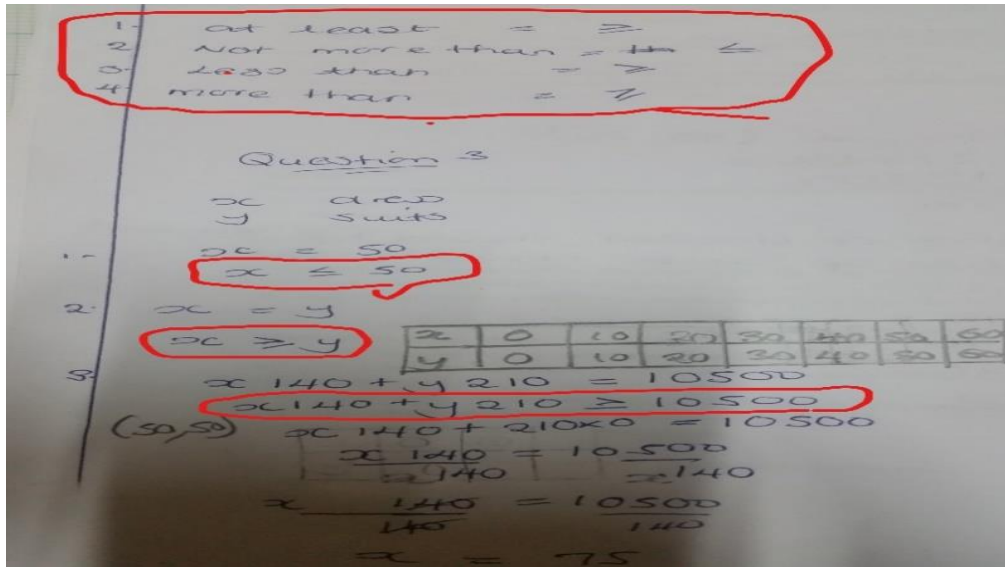 1. at least = ≥
2. Not more than = ≤
3. Less than = ≥
4. more than = ≥
Question 3
x dress
y suits
1. x = 50
x ≤ 50
2. x = y
x ≥ y
x 0 10 20 30 40 50 60
y 0 10 20 30 40 50 60
3. x 140 + y 210 = 10500
x 140 + y 210 ≥ 10500
(50,50) x 140 + 210x0 = 10500
x 140 = 10500
x140 x140
x 140 = 10500
140 140
x = 75